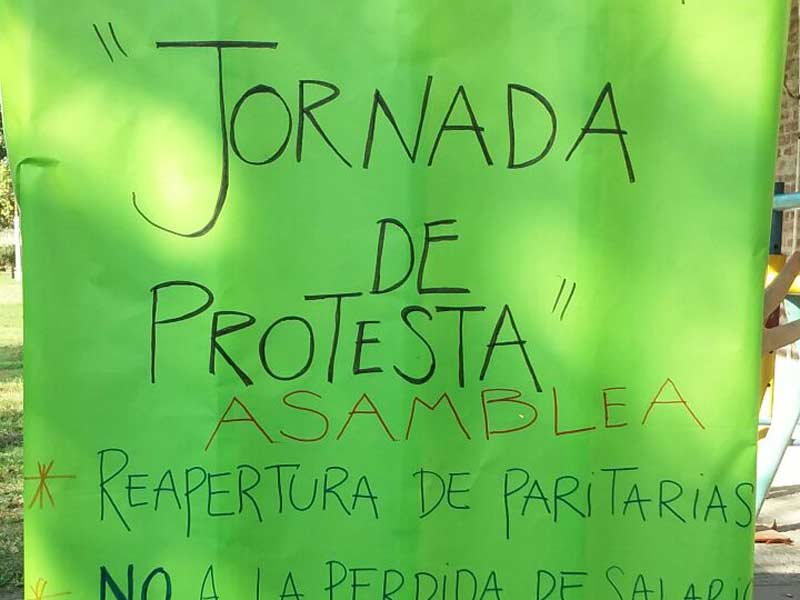 "JORNADA
DE
PROTESTA"
ASAMBLEA
* REAPERTURA DE PARITARIAS
* NO A LA PERDIDA DE SALARIO